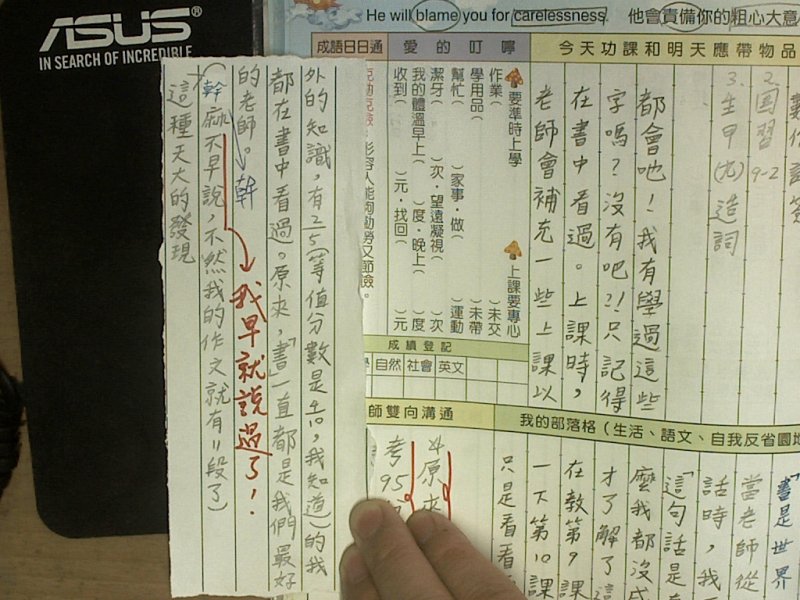 ASUS
IN SEARCH OF INCREDIBLE
He will blame you for carelessness. 他會責備你的粗心大意
今天功課和明天應帶物品
2.國習9-2
3.生甲(九)造詞
都會吔！我有學過這些
字嗎？沒有吧?!只記得
在書中看過。上課時，
老師會補充一些上課以
愛的叮嚀
要準時上學
上課要專心
作業(　)未交
學用品(　)未帶
幫忙(　)家事·做(　)運動
潔牙(　)次·望遠凝視(　)次
我的體溫早上(　)度·晚上(　)度
收到(　)元·找回(　)元
成語日日通
形容人能夠勤勞又節儉。
成績登記
自然 社會 英文
師雙向溝通
我的部落格(生活、語文、自我反省園地
「書是世界
當老師從
話時，我
「這句話是
麼我都沒
才了解了這
在教第9課
一下第10課
只是看看
4原來
考95
外的知識，有2/5(等值分數是4/10，我知道)的我
都在書中看過。原來，「書」一直都是我們最好
的老師。
幹
幹麻不早說，不然我的作文就有11段了)
我早就說過了！
這種天大的發現